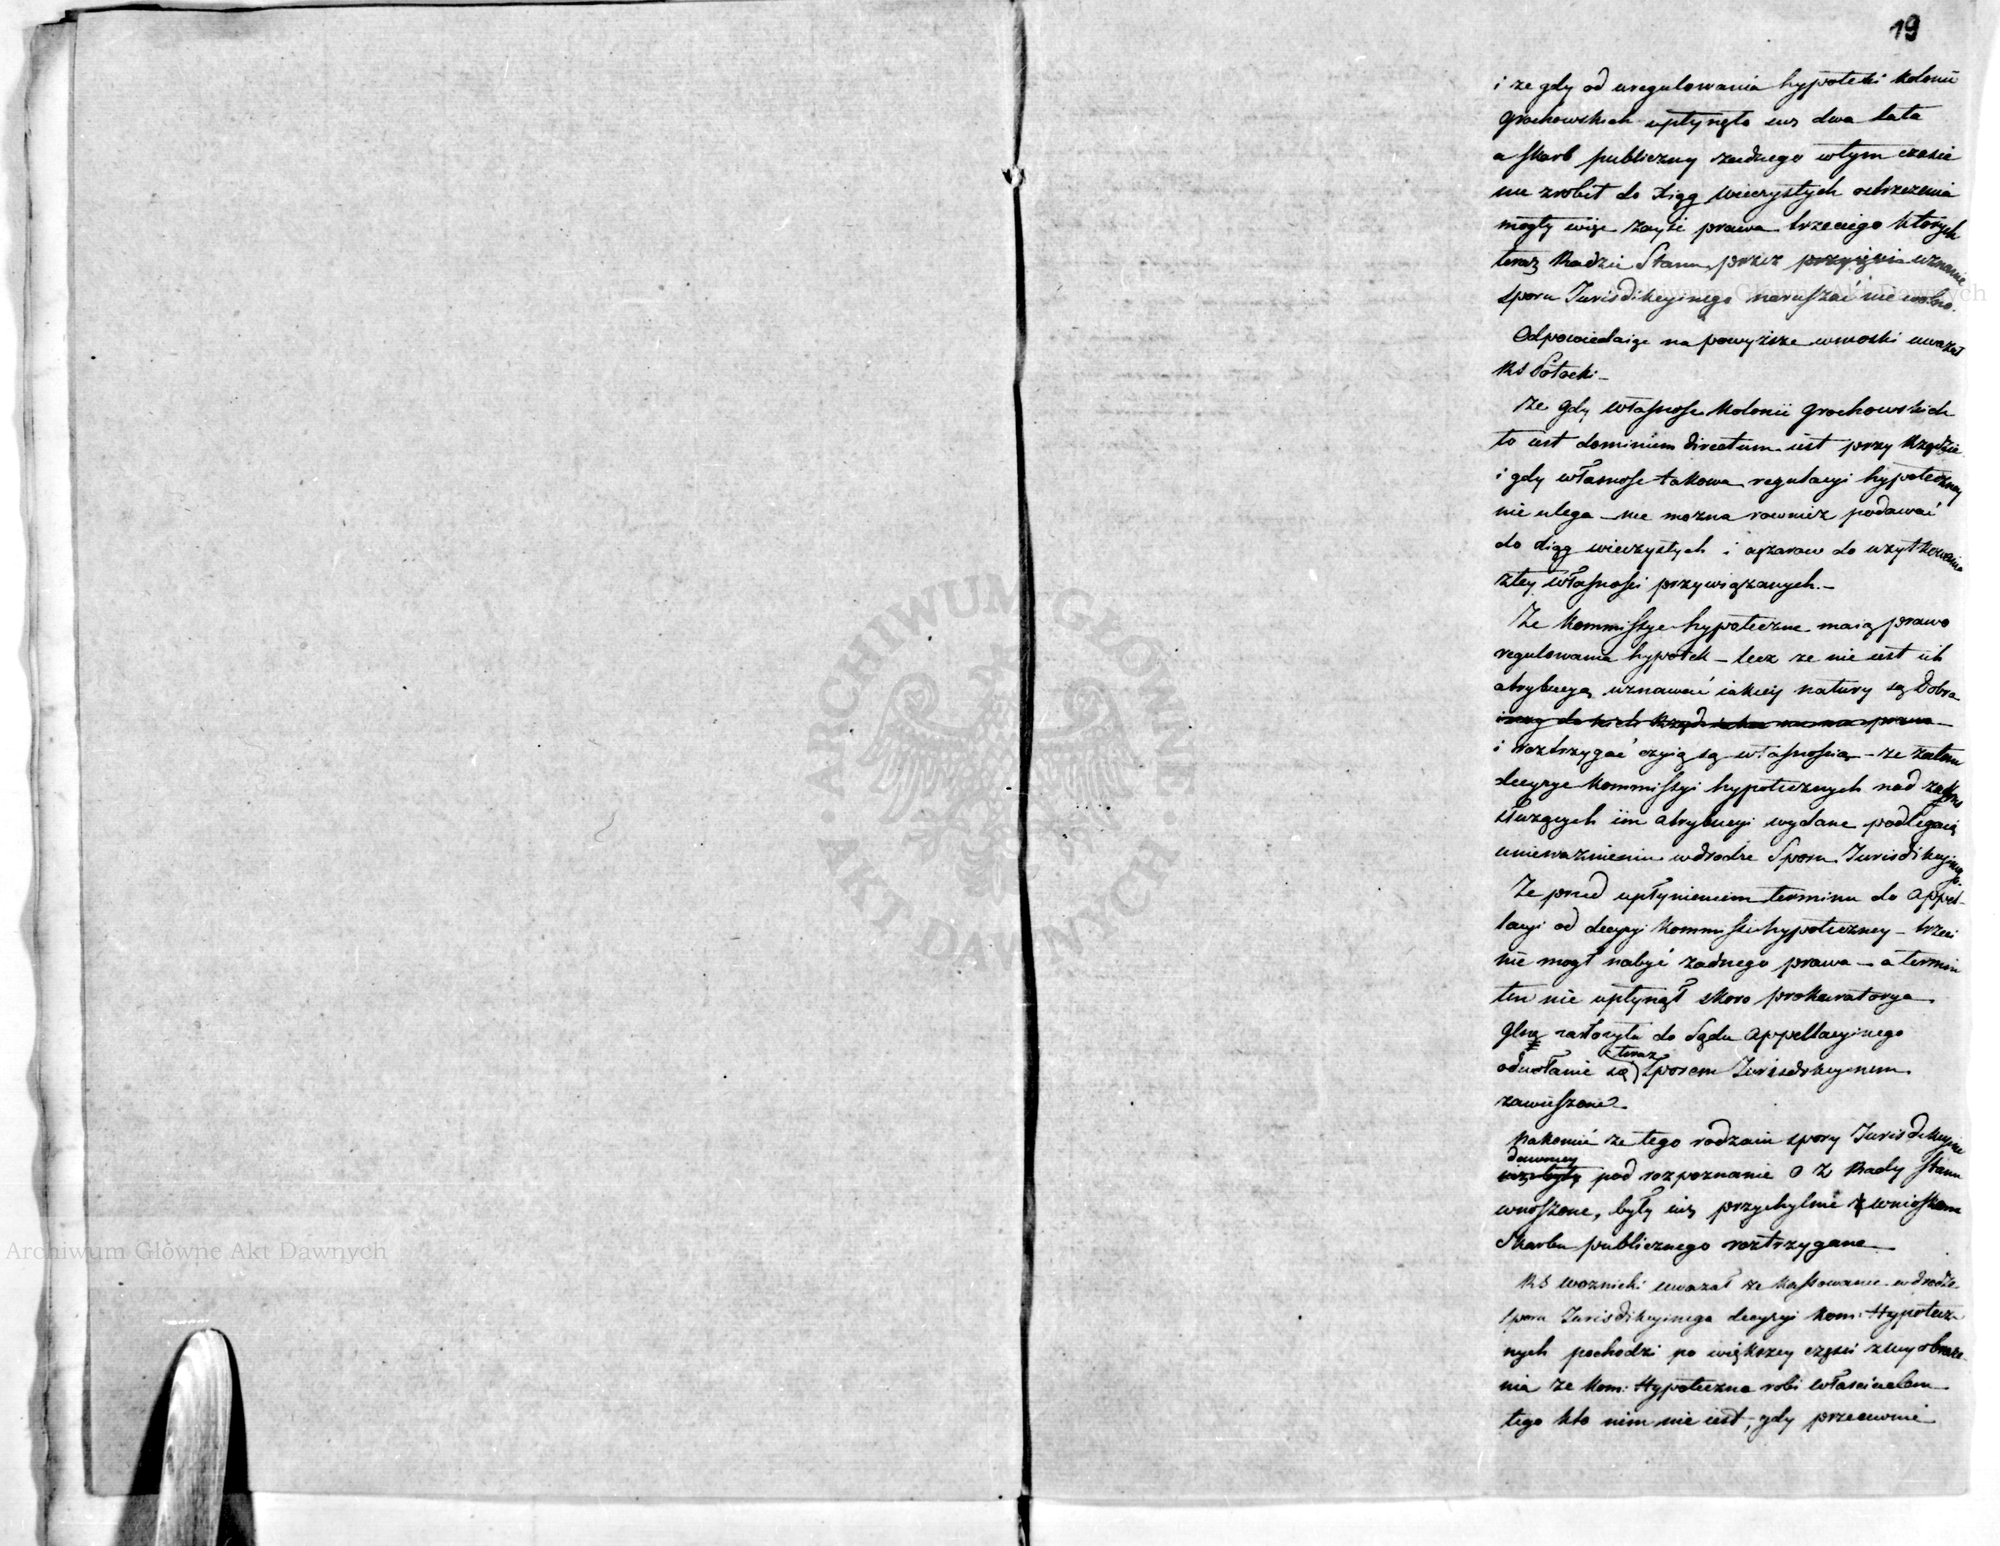 19
i ze gdy od uregulowania hypoteki kolonii
Grochowskich upłynęło iuż dwa lata
a skarb publiczny żadnego wtym czasie
nie zrobił do Xiąg wieczystych ostrzezenia
mogły więc zayść prawa trzeciego których
teraz Radzie Stanu przez przyięcie uznanie
sporu Jurisdikcyinego naruszać nie wolno.
Odpowiedaiąc na powyższe wnioski uważał
RS Potocki –
że gdy własnośc Kolonii Grochowskich
to iest dominium directum iest przy Rządzie
i gdy własnośc takowa regulacyi hypoteczney
nie ulega – nie można rownież podawać
do xiąg wieczystych i cięzarow do użytkowania
ztey własności przywiązanych. –
Że Kommissye hypoteczne maią prawo
regulowania hypotek – lecz ze nie iest ich
atrybucyą uznawać iakiey natury są Dobra
i roztrzygać czyią są własnością – że zatem
decyzye Kommissyi hypotecznych nad zakres
służących im atrybucyi wydane podlegaią
unieważnieniu wdrodze Sporu Jurisdikcyinego.
Że przed upłynieniem terminu do appel-
lacyi od decyzyi Kommissii hypoteczney – trzeci
nie mogł nabyć żadnego prawa – a termin
ten nie upłynął skoro prokuratorya
Glna założyła do Sądu Appellacyinego
odwołanie są teraz Sporem Jurisdikcyinem
zawieszone.
Nakoniec że tego rodzaiu spory Jurisdikcyine
dawniey
pod rozpoznanie O Z Rady Stanu
wnoszone, były iuż przychylnie z wnioskiem
Skarbu publicznego roztrzygane –
RS Woznicki uważał że kassowanie wdrodze
sporu Jurisdikcyinego decyzyi Kom: Hypotecz-
nych pochodzi po większey części z wyobraże-
nia że Kom: Hypoteczna robi właścicielem
tego kto nim nie iest, gdy przeciwnie
Archiwum Główne Akt Dawnych
Archiwum Główne Akt Dawnych
ARCHIWUM GŁÓWNE · AKT DAWNYCH ·